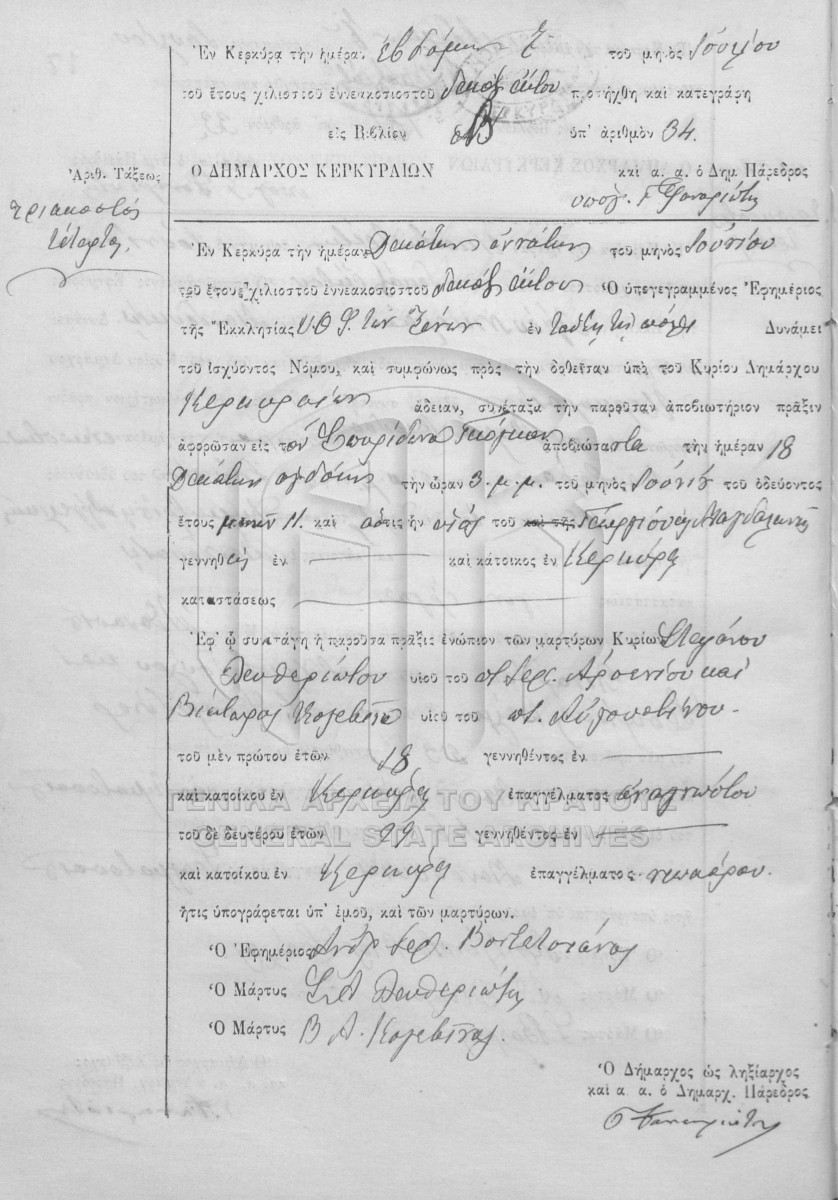 Ἐν Κερκύρᾳ τὴν ἡμέραν ἑβδόμην 7 τοῦ μηνὸς Ἰουλίου
τοῦ ἔτους χιλιοστοῦ ἐννεακοσιοστοῦ δεκάτου ἕκτου προσήχθη καὶ κατεγράφη
εἰς Βιβλίον ὑπ' ἀριθμὸν 34.
Ἀριθ. Τάξεως Ὁ ΔΗΜΑΡΧΟΣ ΚΕΡΚΥΡΑΙΩΝ καὶ α. α. ὁ Δημ. Πάρεδρος
τριακοστὸς
τέταρτος.
ὑπογ.
Ἐν Κερκύρᾳ τὴν ἡμέραν δεκάτην ἐννάτην τοῦ μηνὸς Ἰουνίου
τοῦ ἔτους χιλιοστοῦ ἐννεακοσιοστοῦ ἕκτου Ὁ ὑπογεγραμμένος Ἐφημέριος
τῆς Ἐκκλησίας Υ. Θ. τῶν Ξένων ἐν ταύτῃ τῇ πόλει Δυνάμει
τοῦ ἰσχύοντος Νόμου, καὶ συμφώνως πρὸς τὴν δοθεῖσαν ὑπὸ τοῦ Κυρίου Δημάρχου
Κερκυραίων ἄδειαν, συνέταξα τὴν παροῦσαν ἀποβιωτήριον πρᾶξιν
ἀφορῶσαν εἰς τὸν Σπυρίδωνα ἀποβιώσαντα τὴν ἡμέραν 18
Δεκάτην ὀγδόην τὴν ὥραν 3 μ.μ. τοῦ μηνὸς Ἰουνίου τοῦ ὁδεύοντος
ἔτους καὶ ὅστις ἦν υἱὸς τοῦ καὶ τῆς Γεωργίου καὶ Μαγδαληνῆς
γεννηθεὶς ἐν καὶ κάτοικος ἐν Κερκύρᾳ
καταστάσεως
Ἐφ' ᾧ συνετάγη ἡ παροῦσα πρᾶξις ἐνώπιον τῶν μαρτύρων Κυρίων Στεφάνου
Λευθεριώτου υἱοῦ τοῦ Ἀρσενίου καὶ
Βίκτωρος Κογεβίνα υἱοῦ τοῦ Αὐγουστίνου.
τοῦ μὲν πρώτου ἐτῶν 18 γεννηθέντος ἐν
καὶ κατοίκου ἐν Κερκύρᾳ ἐπαγγέλματος ἀναγνώστου
τοῦ δὲ δευτέρου ἐτῶν 29 γεννηθέντος ἐν
καὶ κατοίκου ἐν Κερκύρᾳ ἐπαγγέλματος νεωκόρου.
ἥτις ὑπογράφεται ὑπ' ἐμοῦ, καὶ τῶν μαρτύρων.
Ὁ Ἐφημέριος
Ὁ Μάρτυς Σ. Α. Λευθεριώτης
Ὁ Μάρτυς Β. Α. Κογεβίνας
Ὁ Δήμαρχος ὡς ληξίαρχος
καὶ α α. ὁ Δημαρχ. Πάρεδρος
ΓΕΝΙΚΑ ΑΡΧΕΙΑ ΤΟΥ ΚΡΑΤΟΥΣ
GENERAL STATE ARCHIVES